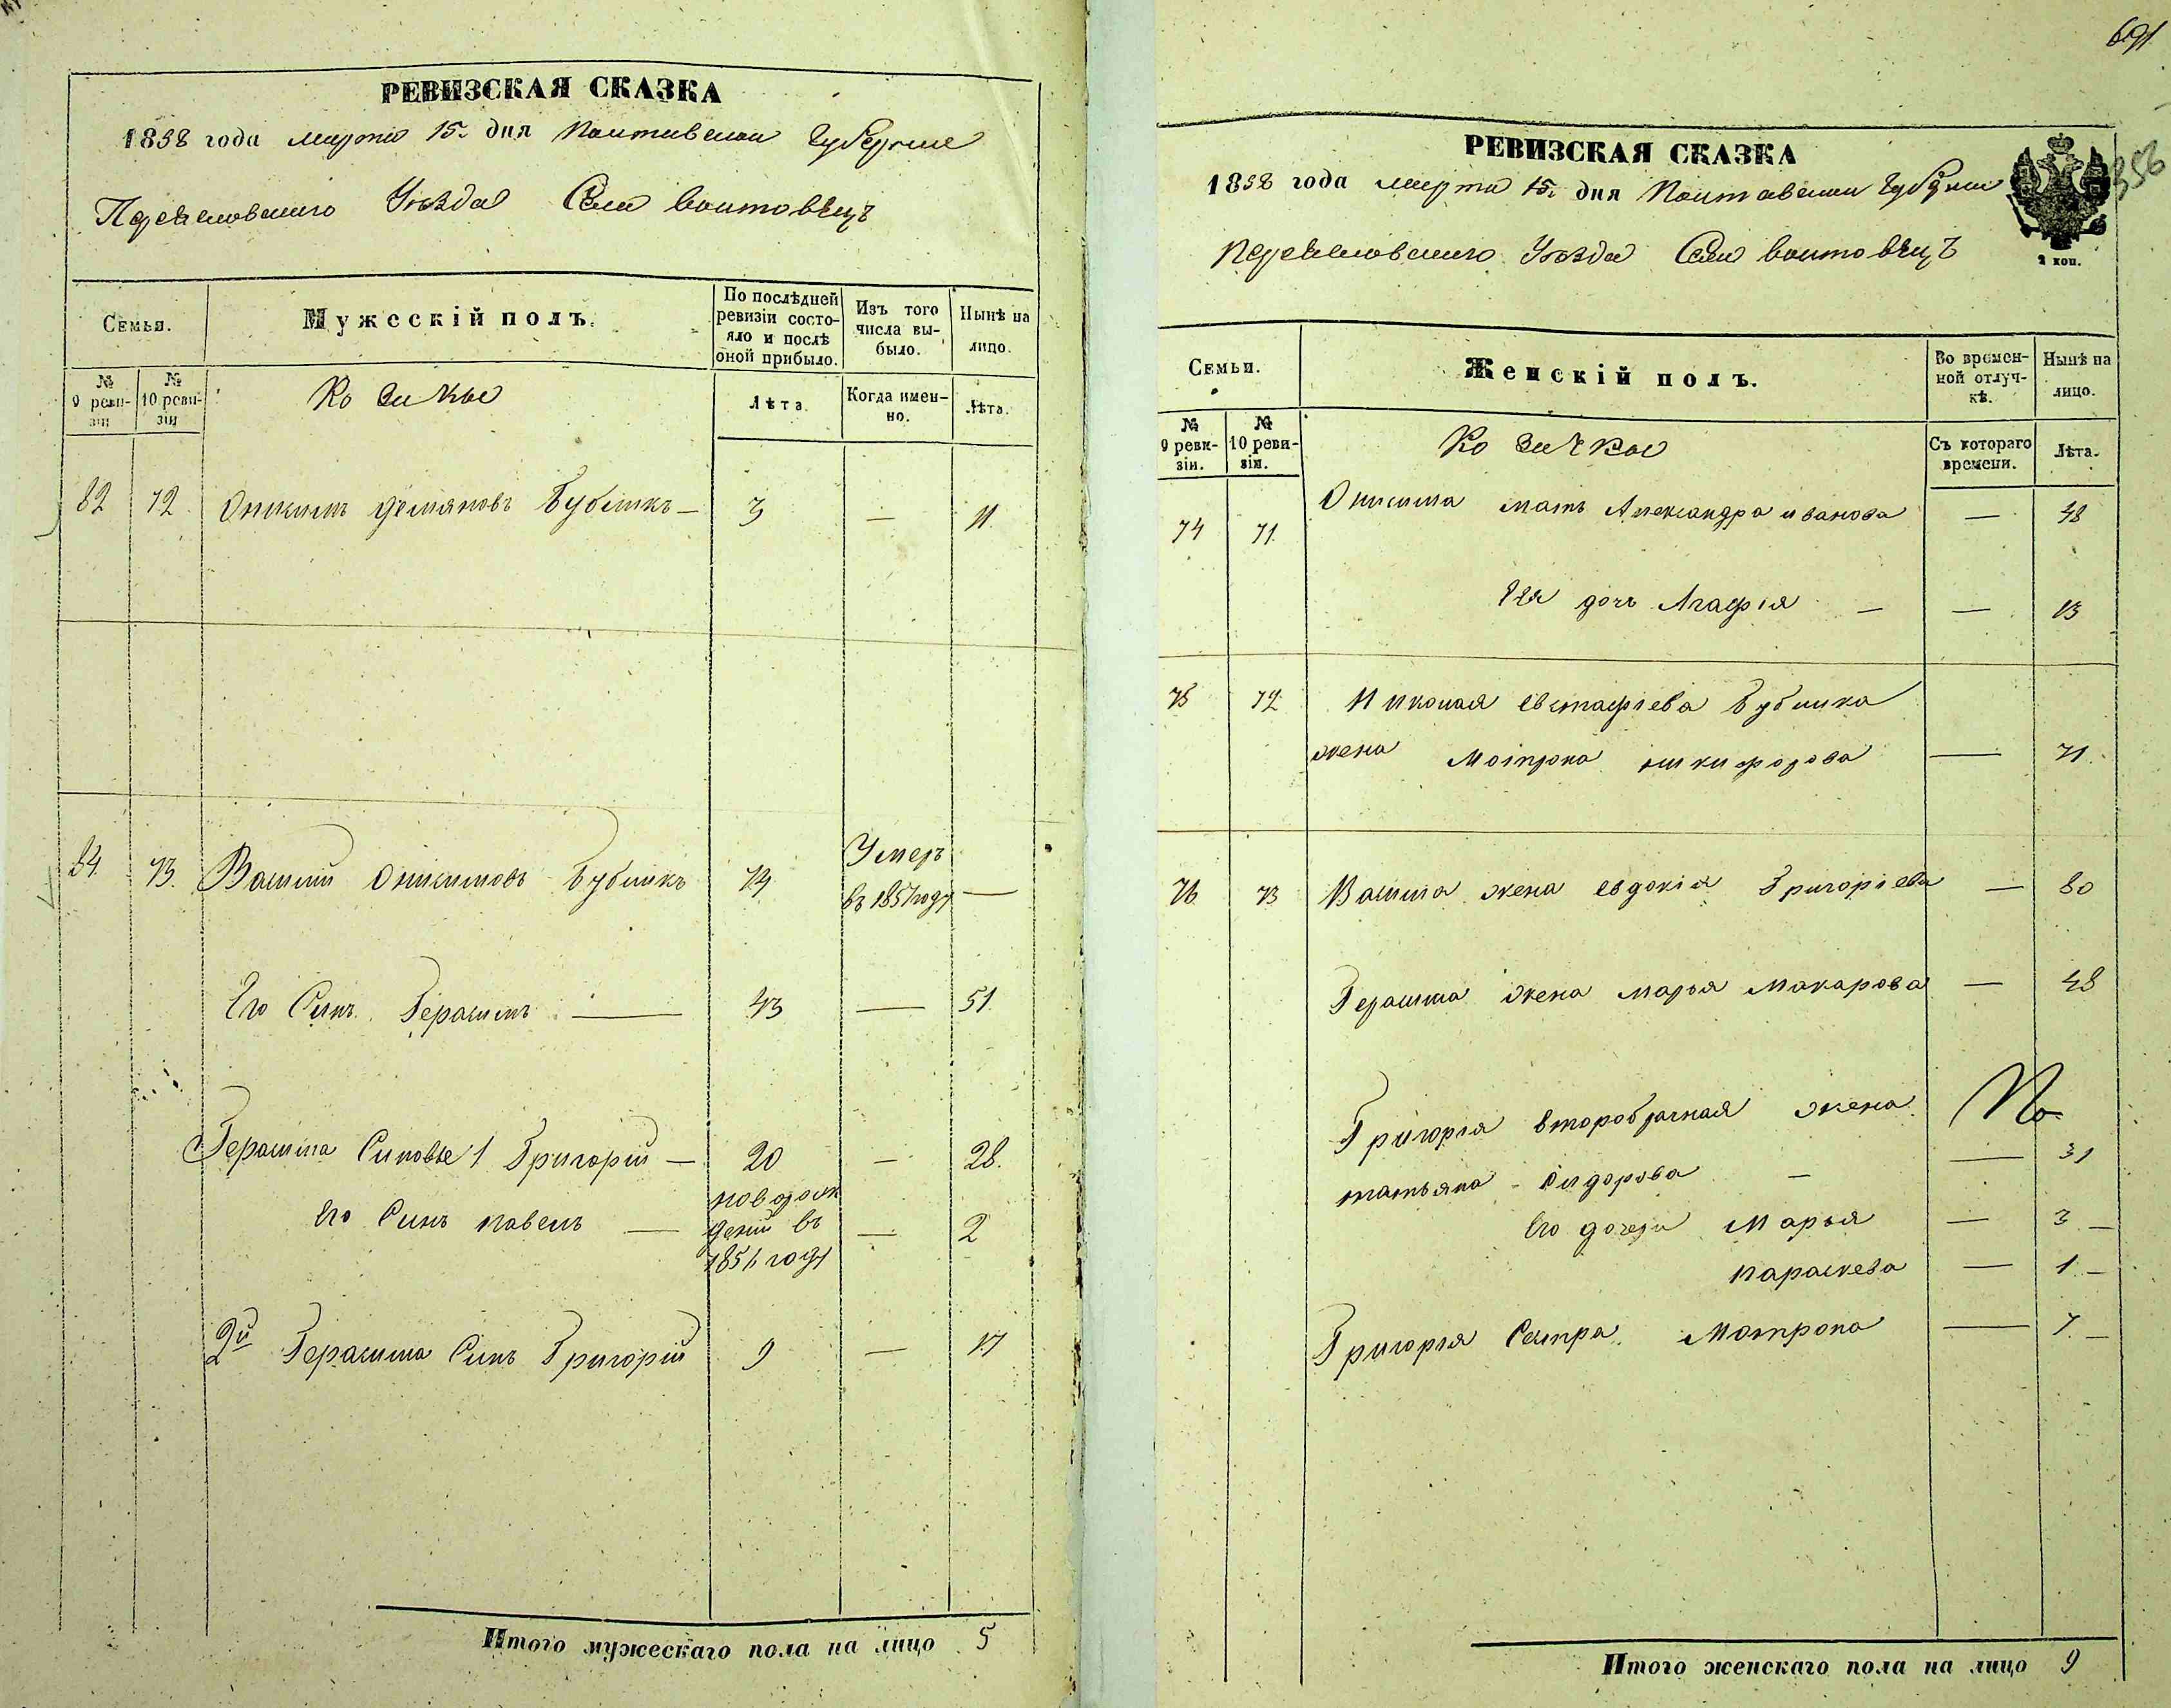 РЕВИЗСКАЯ СКАЗКА
1858 года марта 15. дня Полтавской Губернiи
Переяславского Уѣзда Села Войтовець
Семьи.
Мужескій полъ.
По послѣдней ревизіи состояло и послѣ оной прибыло.
Изъ того числа выбыло.
Нынѣ на лицо.
№ 9 ревизіи
№ 10 ревизіи
Козачкое
Лѣта.
Когда именно.
Лѣта.
82 72 Онисимъ Демяновъ Бубликъ — 3 — 11
84. 73. Василий Онисимовъ Бубликъ 74 Умеръ въ 1857 году —
Его Синъ Герасимъ — 43 — 51.
Герасима Синовье 1 Григорий — 20 — 28.
Его Синъ павелъ — новорожденій въ 1856 году — 2
2й Герасима Синъ Григорій 9 — 17
Итого мужескаго пола на лицо 5
691
356
РЕВИЗСКАЯ СКАЗКА
1858 года марта 15. дня Полтавской Губернiи
Переяславского Уѣзда Села Войтовець
2 коп.
Семьи.
Женскій полъ.
Во временной отлучкѣ.
Нынѣ на лицо.
№ 9 ревизіи.
№ 10 ревизіи.
Козачкое
Съ котораго времени.
Лѣта.
74 71. Онисима мать Александра иванова — 48
Ея дочь Агафія — — 13
75 72 Николая Евстафіева Бублика
жена Мотрона никифорова — 71.
76. 73 Василия жена Евдокія Григоріева — 80
Герасима жена марья Макарова — 48
Григорія второбрачная жена
татьяна Сидорова — — 31
Его дочери Марья — 3 —
параскева — 1. —
Григорія Сестра. Мотрона — 7. —
Итого женскаго пола на лицо 9